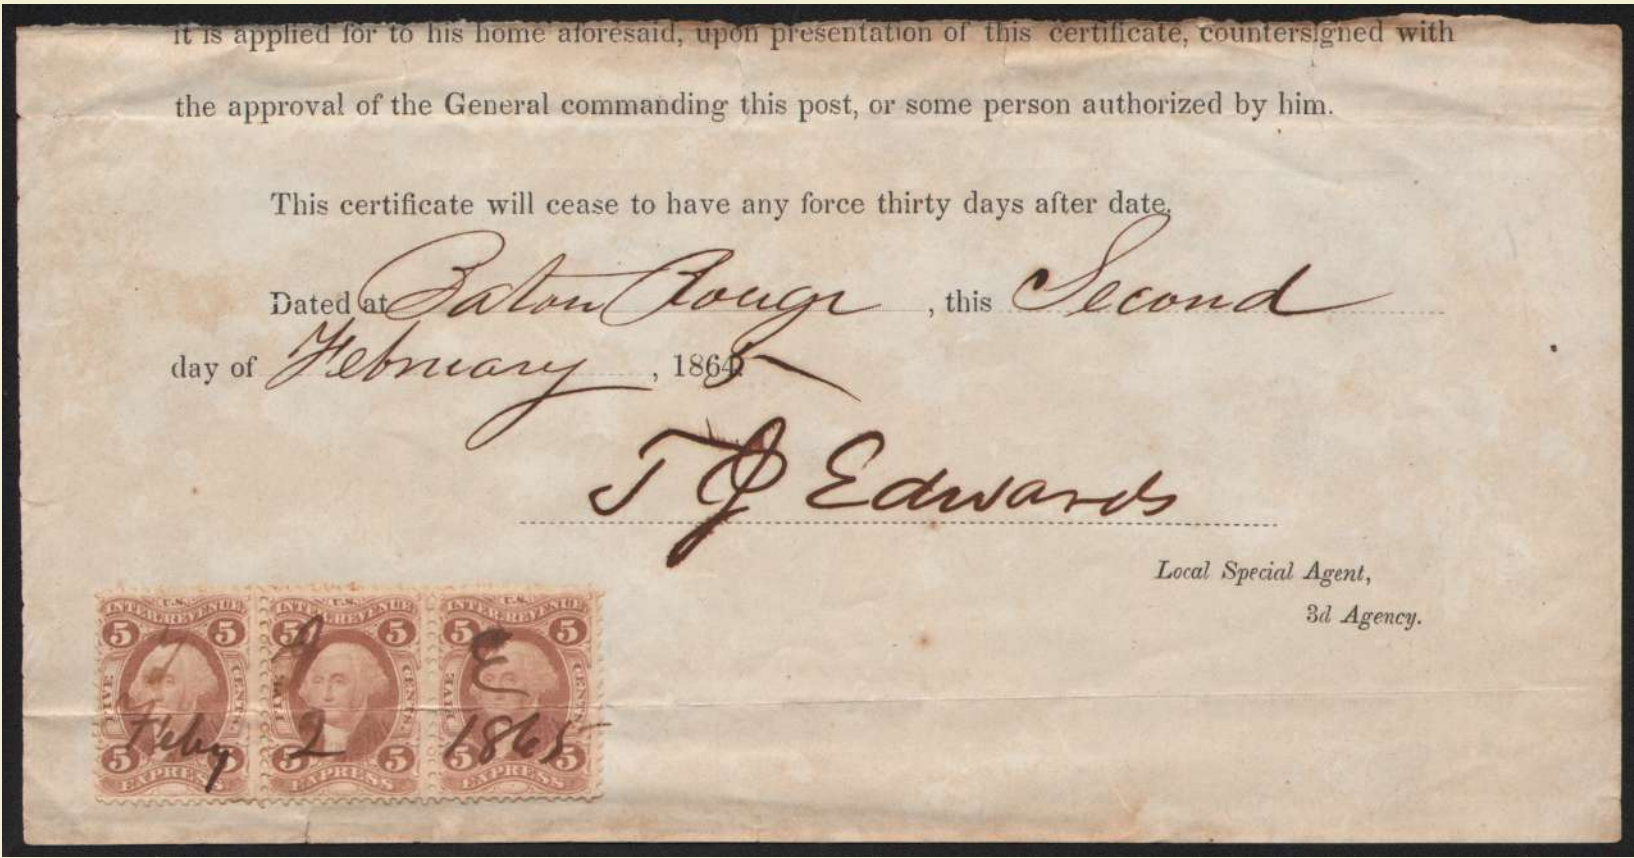 it is applied for to his home aforesaid, upon presentation of this certificate, countersigned with
the approval of the General commanding this post, or some person authorized by him.
This certificate will cease to have any force thirty days after date.
Dated at Baton Rouge, this Second
day of February, 1865
T J Edwards
Local Special Agent,
3d Agency.
U.S. U.S. U.S.
INTER. REVENUE INTER. REVENUE INTER. REVENUE
5 5 5 5 5 5
T J E
FIVE CENTS FIVE CENTS FIVE CENTS
Feby 2 1865
5 5 5 5 5 5
EXPRESS EXPRESS EXPRESS